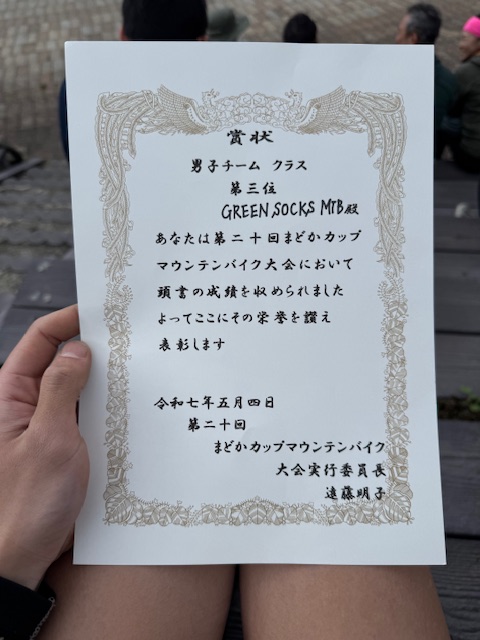 賞状
男子チーム クラス
第三位
GREEN SOCKS MTB殿
あなたは第二十回まどかカップ
マウンテンバイク大会において
頭書の成績を収められました
よってここにその栄誉を讃え
表彰します
令和七年五月四日
第二十回
まどかカップマウンテンバイク
大会実行委員長
遠藤明子